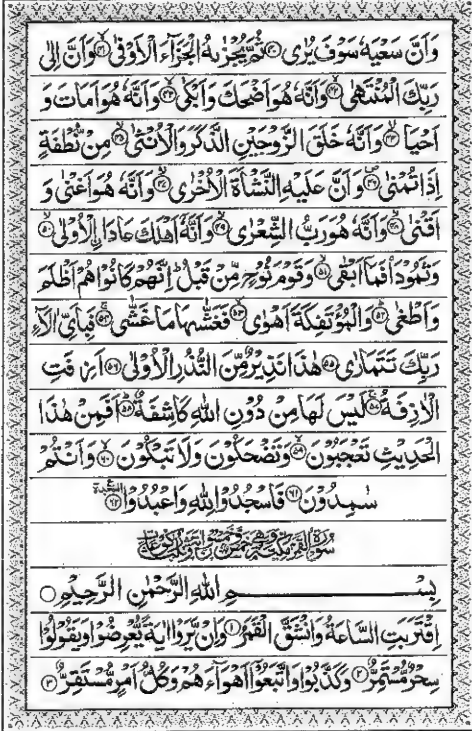 وَاَنَّ سَعْيَهٗ سَوْفَ يُرٰى ۝۴۰ ثُمَّ يُجْزٰىهُ الْجَزَآءَ الْاَوْفٰى ۝۴۱ وَاَنَّ اِلٰى
رَبِّكَ الْمُنْتَهٰى ۝۴۲ وَاَنَّهٗ هُوَ اَضْحَكَ وَاَبْكٰى ۝۴۳ وَاَنَّهٗ هُوَ اَمَاتَ وَ
اَحْيَا ۝۴۴ وَاَنَّهٗ خَلَقَ الزَّوْجَيْنِ الذَّكَرَ وَالْاُنْثٰى ۝۴۵ مِنْ نُّطْفَةٍ
اِذَا تُمْنٰى ۝۴۶ وَاَنَّ عَلَيْهِ النَّشْاَةَ الْاُخْرٰى ۝۴۷ وَاَنَّهٗ هُوَ اَغْنٰى وَ
اَقْنٰى ۝۴۸ وَاَنَّهٗ هُوَ رَبُّ الشِّعْرٰى ۝۴۹ وَاَنَّهٗٓ اَهْلَكَ عَادَا ِۨالْاُوْلٰى ۝۵۰
وَثَمُوْدَا۟ فَمَآ اَبْقٰى ۝۵۱ وَقَوْمَ نُوْحٍ مِّنْ قَبْلُ ؕ اِنَّهُمْ كَانُوْا هُمْ اَظْلَمَ
وَاَطْغٰى ۝۵۲ وَالْمُؤْتَفِكَةَ اَهْوٰى ۝۵۳ فَغَشّٰىهَا مَا غَشّٰى ۝۵۴ فَبِاَيِّ اٰلَآءِ
رَبِّكَ تَتَمَارٰى ۝۵۵ هٰذَا نَذِيْرٌ مِّنَ النُّذُرِ الْاُوْلٰى ۝۵۶ اَزِفَتِ
الْاٰزِفَةُ ۝۵۷ لَيْسَ لَهَا مِنْ دُوْنِ اللّٰهِ كَاشِفَةٌ ۝۵۸ اَفَمِنْ هٰذَا
الْحَدِيْثِ تَعْجَبُوْنَ ۝۵۹ وَتَضْحَكُوْنَ وَلَا تَبْكُوْنَ ۝۶۰ وَاَنْتُمْ
سٰمِدُوْنَ ۝۶۱ فَاسْجُدُوْا لِلّٰهِ وَاعْبُدُوْا ۝۶۲ السجدة
سُوْرَةُ الْقَمَرِ مَكِّيَّةٌ وَّهِيَ خَمْسٌ وَّخَمْسُوْنَ اٰيَةً وَّثَلٰثُ رُكُوْعَاتٍ
بِسْــــــمِ اللّٰهِ الرَّحْمٰنِ الرَّحِيْمِ ۝
اِقْتَرَبَتِ السَّاعَةُ وَانْشَقَّ الْقَمَرُ ۝۱ وَاِنْ يَّرَوْا اٰيَةً يُّعْرِضُوْا وَيَقُوْلُوْا
سِحْرٌ مُّسْتَمِرٌّ ۝۲ وَكَذَّبُوْا وَاتَّبَعُوْٓا اَهْوَآءَهُمْ وَكُلُّ اَمْرٍ مُّسْتَقِرٌّ ۝۳